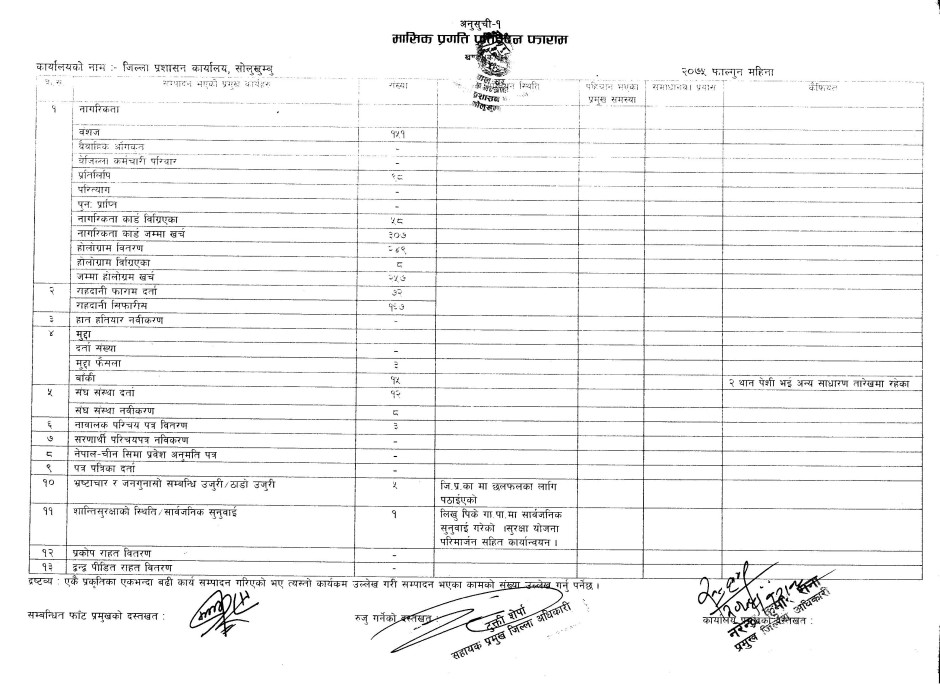 अनुसुची-१
मासिक प्रगति प्रतिवेदन फाराम
कार्यालयको नाम :- जिल्ला प्रशासन कार्यालय, सोलुखुम्बु
२०७५ फाल्गुन महिना
सम्पादन भएका प्रमुख कार्यहरु संख्या स्थिति पहिचान भएका प्रमुख समस्या समाधानका प्रयास कैफियत
१ नागरिकता
वंशज १५१
बैवाहिक अंगिकृत -
बेजिल्ला कर्मचारी परिवार -
प्रतिलिपि ९८
परित्याग -
पुनः प्राप्ति -
नागरिकता कार्ड विग्रिएका ५८
नागरिकता कार्ड जम्मा खर्च ३०७
होलोग्राम वितरण २४९
होलोग्राम विग्रिएका ८
जम्मा होलोग्राम खर्च २५७
२ राहदानी फाराम दर्ता ७२
राहदानी सिफारीस १६७
३ हात हतियार नवीकरण -
४ मुद्दा
दर्ता संख्या -
मुद्दा फैसला ३
बाँकी १५ २ थान पेशी भई अन्य साधारण तारेखमा रहेका
५ संघ संस्था दर्ता १२
संघ संस्था नवीकरण ८
६ नाबालक परिचय पत्र वितरण ३
७ सरणार्थी परिचयपत्र नविकरण -
८ नेपाल-चीन सिमा प्रवेश अनुमति पत्र -
९ पत्र पत्रिका दर्ता -
१० भ्रष्टाचार र जनगुनासो सम्बन्धि उजुरी/ठाडो उजुरी ५ जि.प्र.का मा छलफलका लागि
पठाईएको
११ शान्तिसुरक्षाको स्थिति/सार्वजनिक सुनुवाई १ लिखु पिके गा.पा.मा सार्वजनिक
सुनुवाई गरेको ।सुरक्षा योजना
परिमार्जन सहित कार्यान्वयन ।
१२ प्रकोप राहत वितरण -
१३ द्वन्द्व पीडित राहत वितरण -
द्रष्टव्य : एकै प्रकृतिका एकभन्दा बढी कार्य सम्पादन गरिएको भए त्यस्तो कार्यक्रम उल्लेख गरी सम्पादन भएका कामको संख्या उल्लेख गर्नु पर्नेछ ।
सम्बन्धित फाँट प्रमुखको दस्तखत :
रुजु गर्नेको दस्तखत :
कार्यालय प्रमुखको दस्तखत :
शेर्पा
सहायक प्रमुख जिल्ला अधिकारी
राना
प्रमुख जिल्ला अधिकारी